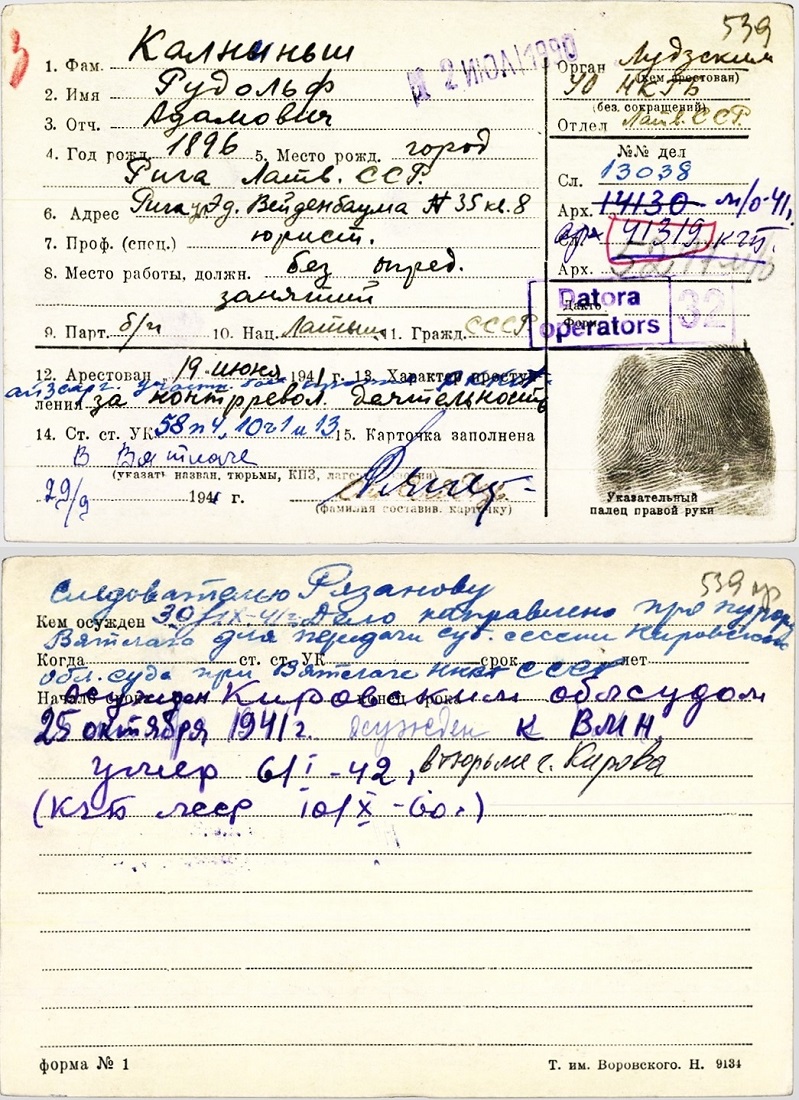 539
1. Фам. Калныньш
2 ИЮЛ 1990
2. Имя Рудольф
3. Отч. Адамович
4. Год рожд. 1896 5. Место рожд. город
Рига Латв. ССР.
6. Адрес Рига, Эд. Вейденбаума № 35 кв. 8
7. Проф. (спец.) юрист.
8. Место работы, должн. без опред.
занятий
9. Парт. б/п 10. Нац. Латыш 11. Гражд. СССР
Орган Лудзским
(кем арестован)
УО НКГБ
(без. сокращений)
Отдел Латв. ССР.
№№ дел
Сл. 13038
Арх. 14130 м/о-41г.
арх. 41319 кгб.
Сл.
Арх.
Datora
operators 32
Дакто
12. Арестован 19 июня 1941 г. 13. Характер преступ-
айзсарг.
ления за контрревол. деятельность
14. Ст. ст. УК 58 п 4, 10 ч 1 и 13 15. Карточка заполнена
В Вятлаге
(указать назван, тюрьмы, КПЗ, лаге
29/9 1941 г.
(фамилия составив. карточку)
Указательный
палец правой руки
539
Следователю Рязанову
Кем осужден 30/IX-41г. Дело направлено прокурору
Вятлага для передачи суд. сессии Кировского
Когда ст. ст. УК срок лет
обл. суда при Вятлаге НКВД СССР
Начало срока конец срока
Осужден Кировским облсудом
25 октября 1941г. осужден к ВМН.
умер 6/I-42, в тюрьме г. Кирова
(КГБ ЛССР 10/X-60г.)
форма № 1
Т. им. Воровского. Н. 9134